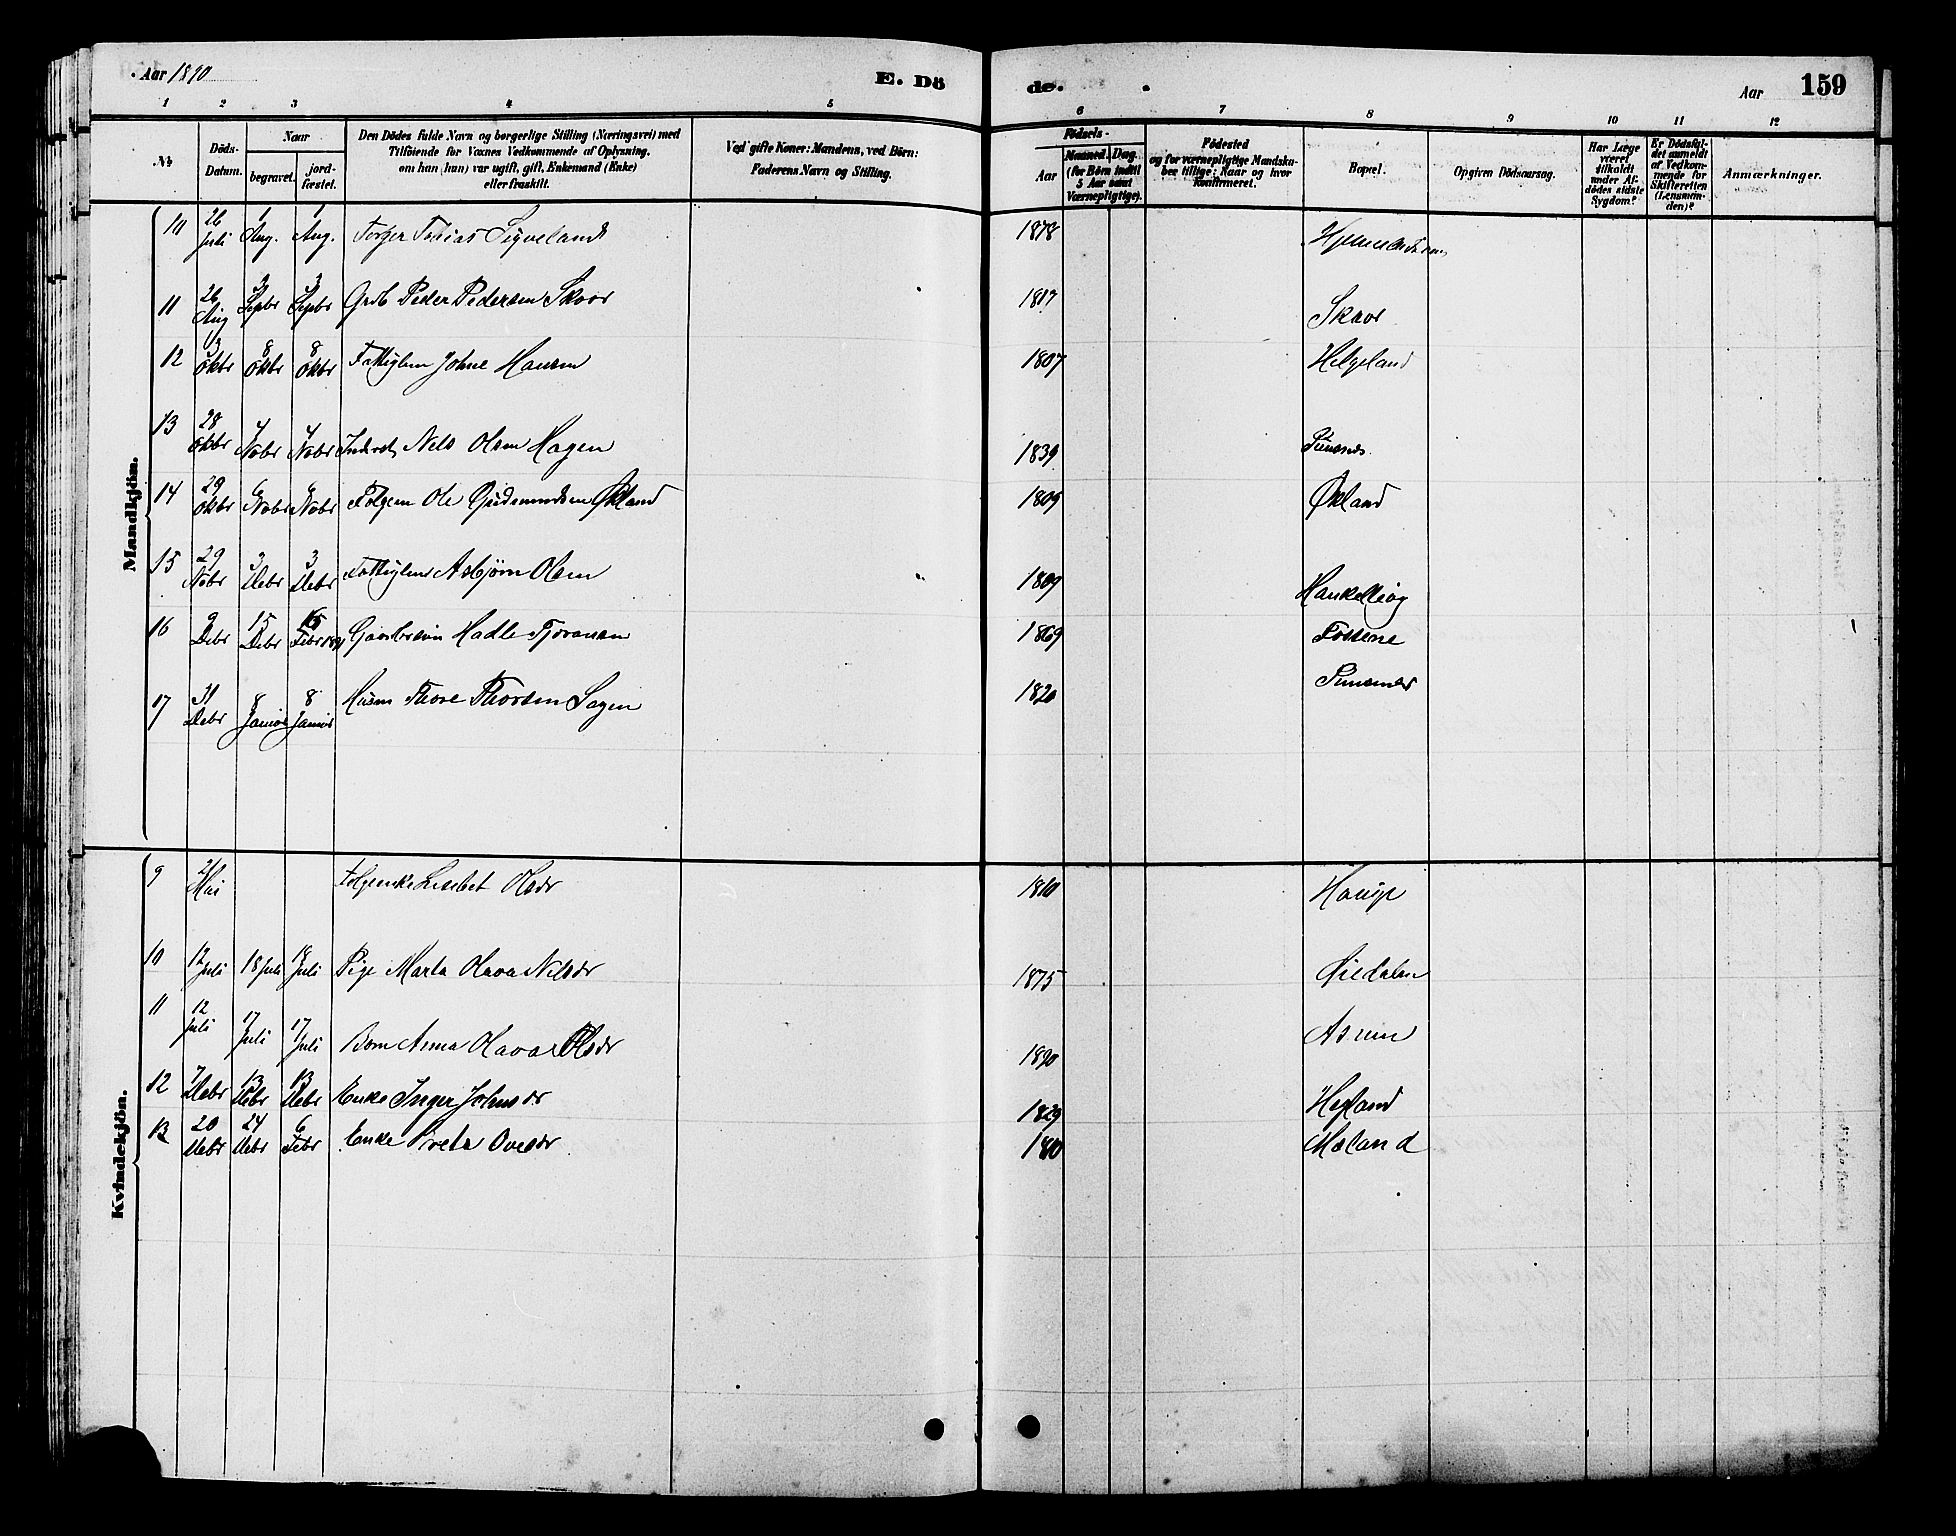 Aar 1890 E. Döde. Aar 159
1 2 3 4 5 6 7 8 9 10 11 12
No
Döds-Datum.
Naar
begravet.
jord-fæstet.
Den Dödes fulde Navn og borgerlige Stilling (Næringsvei) med
Tilföiende for Voxnes Vedkommende af Oplysning,
om han (hun) var ugift, gift, Enkemand (Enke)
eller fraskilt.
Ved gifte Koner: Mandens, ved Börn:
Faderens Navn og Stilling.
Födsels-
Aar
Maaned. Dag.
(for Börn indtil
5 Aar samt
Værnepligtige).
Födested
og for værnepligtige Mandska-
ber tillige: Naar og hvor
konfirmeret.
Bopæl.
Opgiven Dödsaarsag.
Har Læge
været
tilkaldt
under Af-
dödes sidste
Sygdom?
Er Dödsfal-
det anmeldt
af Vedkom-
mende for
Skifteretten
(Lensman-
den)?
Anmærkninger.
Mandkjön.
10 26 Juli 1 Aug. 1 Aug. Torger Tobias Sigveland 1878
11 26 Aug 3 Sepbr 3 Sepbr Grdb Peder Pedersen Skaar 1817 Skaar
12 3 Oktbr 8 Oktbr 8 Oktbr Fattiglem Johne Hansen 1807 Helgeland
13 28 Oktbr 4 Nobr 4 Nobr Inderst Nels Olsen Hagen 1839
14 29 Oktbr 6 Nobr 6 Nobr Folgem Ole Gudmundsen Økland 1809 Økland
15 29 Nobr 3 Debr 3 Debr Fattiglem Asbjørn Olsen 1809
16 9 Debr 15 Debr 15 Febr Gaardbrsøn Hadle Tjeransen 1869 Fossene
17 31 Debr 8 Januar 8 Januar Husm Thore Thorsen Sagen 1820
Kvindekjön.
9 Mai Folgeenke Lisebet Olsdr 1810 Hauge
10 12 Juli 18 Juli 18 Juli Pige Marta Olava Nilsdr 1875
11 12 Juli 17 Juli 17 Juli Barn Anna Olava Olsdr 1890
12 7 Debr 13 Debr 13 Debr Enke Inger Johnsdr 1829 Hegland
13 20 Debr 24 Debr 6 Febr Enke Siveta Ovedr Mæland